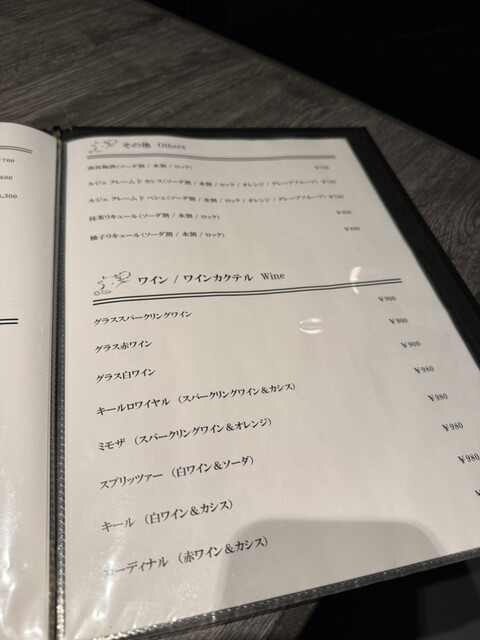 ¥700
800
,300
その他 Others
南高梅酒(ソーダ割 / 水割 / ロック) ¥700
ルジェ クレーム ド カシス(ソーダ割 / 水割 / ロック / オレンジ / グレープフルーツ) ¥700
ルジェ クレーム ド ペシェ(ソーダ割 / 水割 / ロック / オレンジ / グレープフルーツ) ¥700
抹茶リキュール(ソーダ割 / 水割 / ロック)
柚子リキュール(ソーダ割 / 水割 / ロック)
ワイン / ワインカクテル Wine
グラススパークリングワイン ¥900
グラス赤ワイン ¥900
グラス白ワイン ¥900
キールロワイヤル (スパークリングワイン&カシス) ¥980
ミモザ (スパークリングワイン&オレンジ) ¥980
スプリッツァー (白ワイン&ソーダ) ¥980
キール (白ワイン&カシス) ¥980
カーディナル (赤ワイン&カシス) ¥